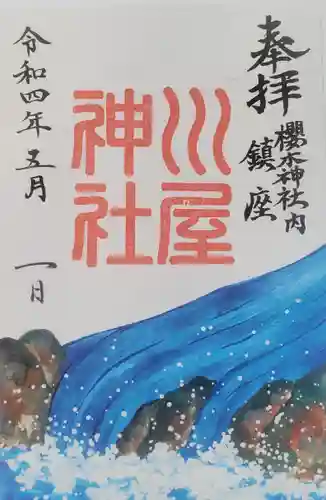 奉拝
櫻木神社内
鎮座
川屋
神社
令和四年五月
一日